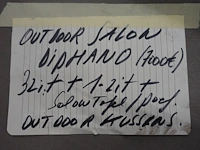 OUTDOOR SALON
DIPHANO (7000€)
3Zit + 1-Zit +
Salontafel/poef.
OUTDOOR KUSSENS.